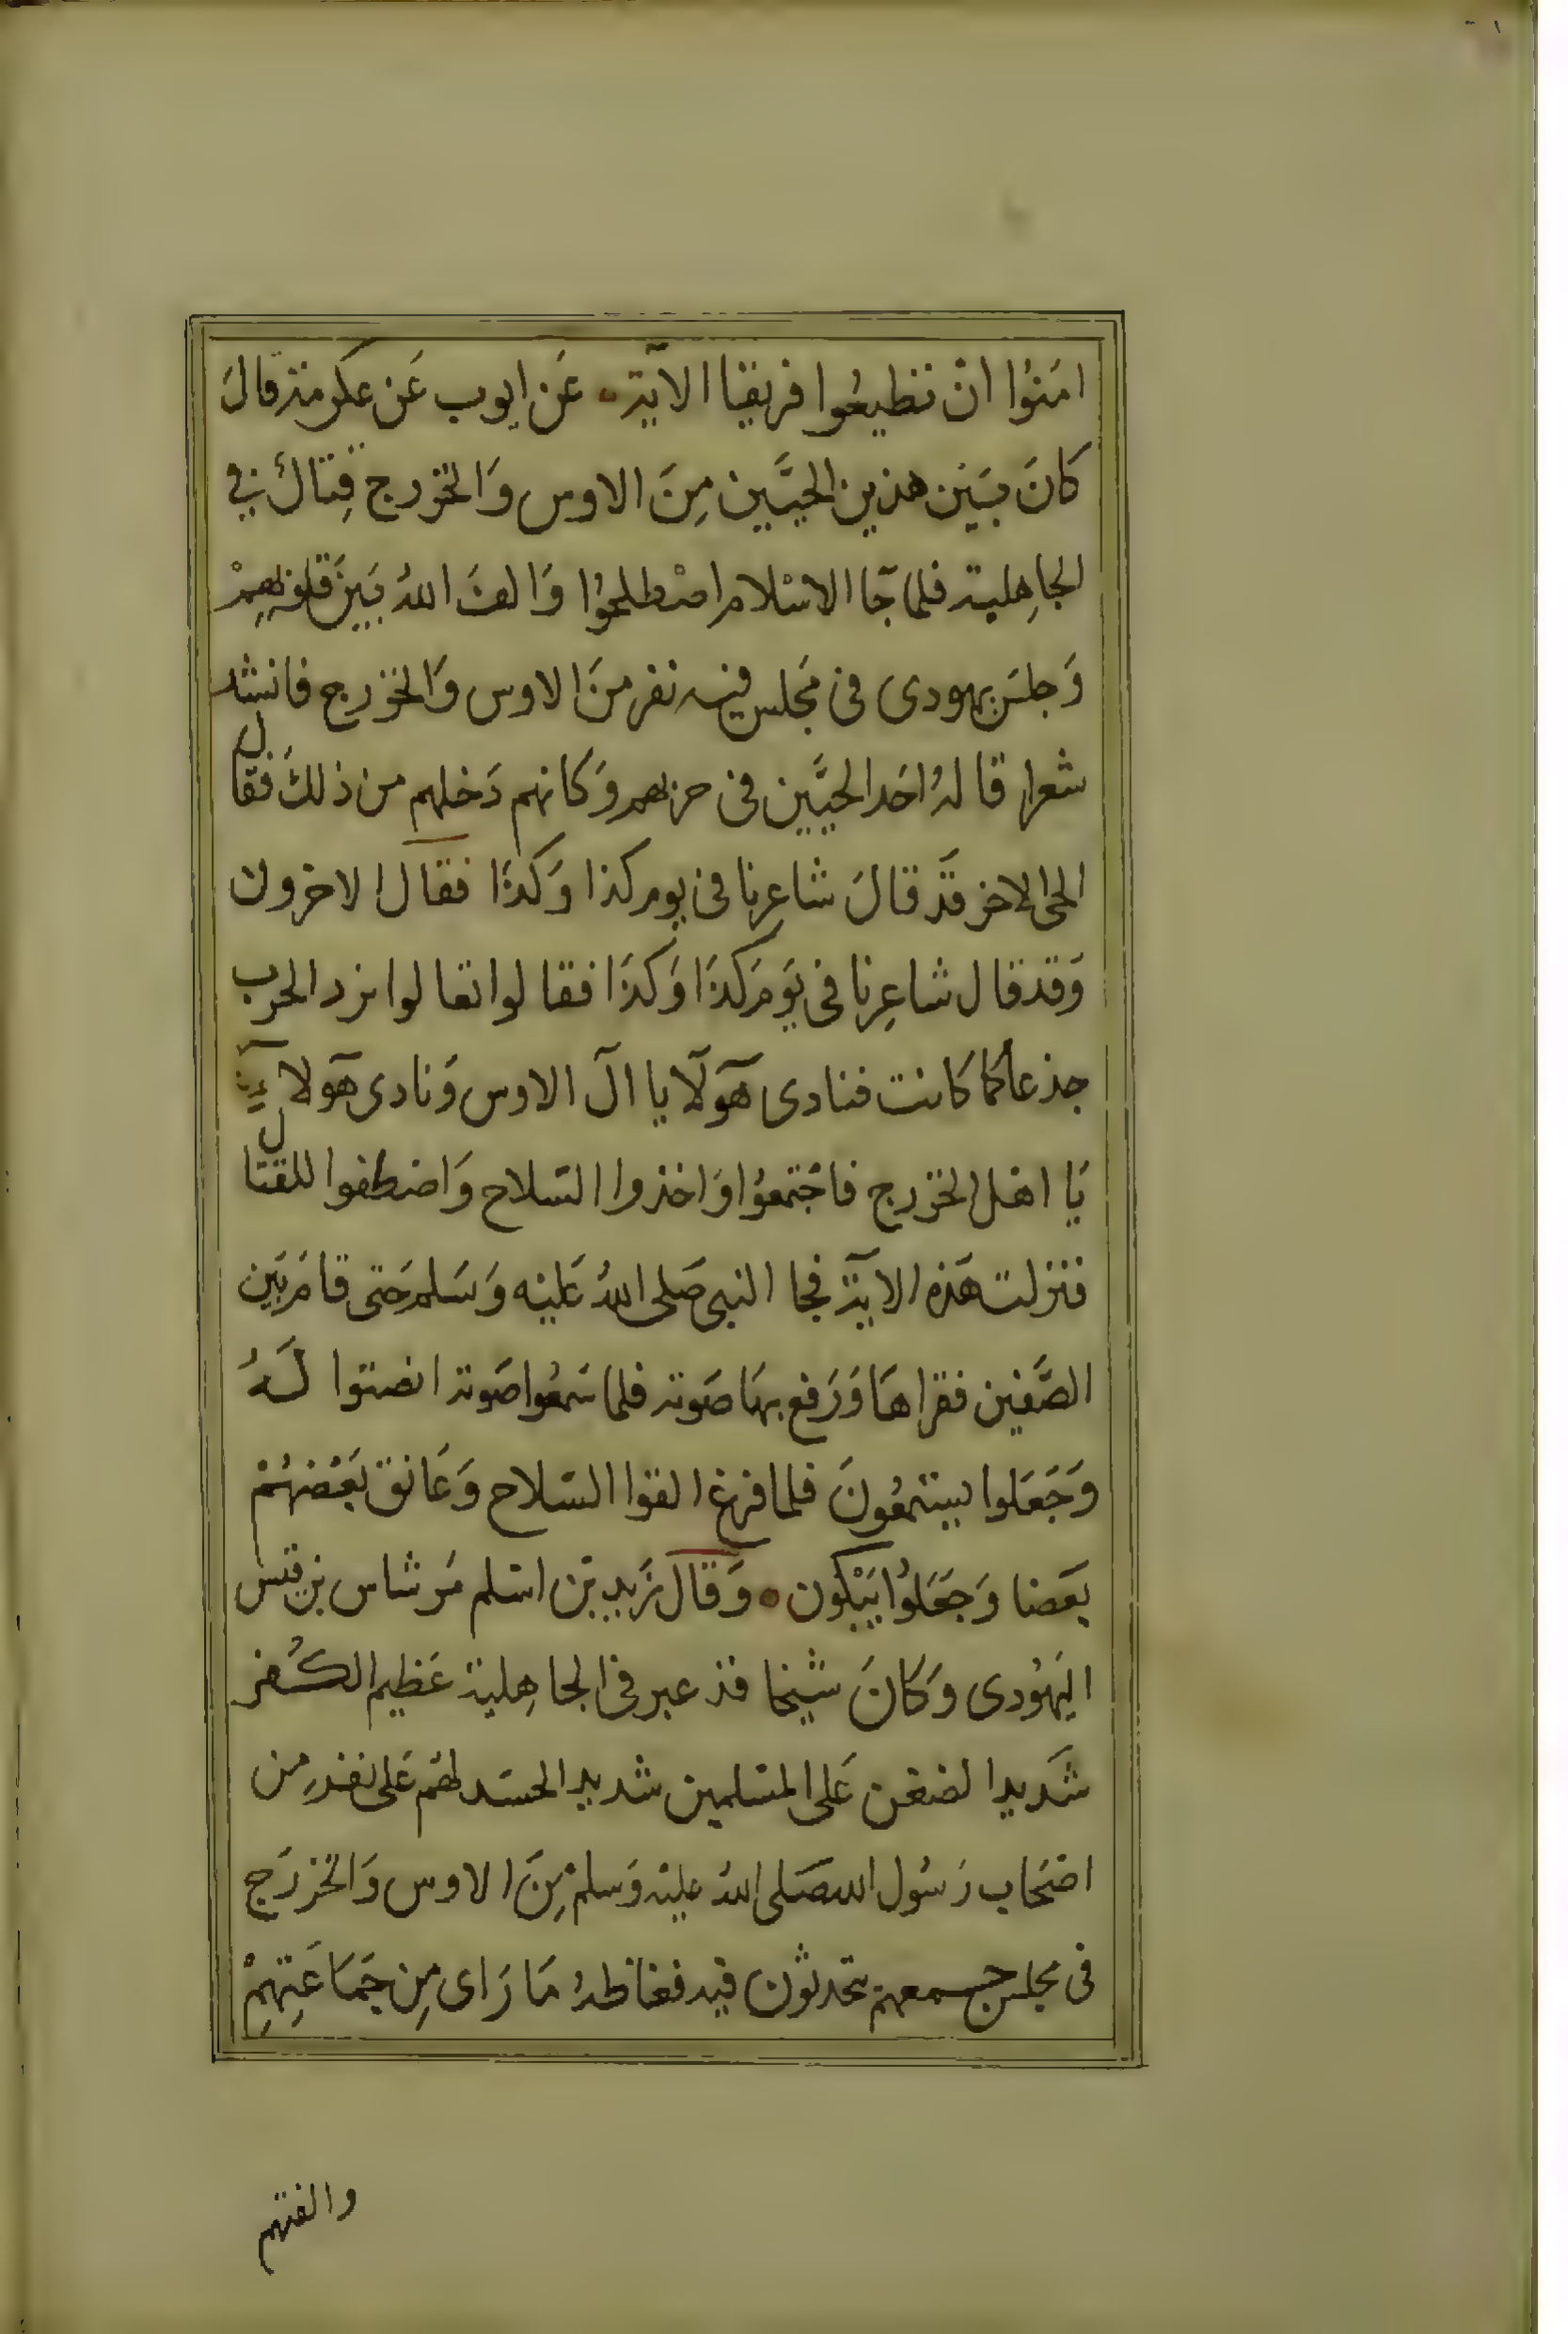 امَنوُا ان تطيعُوا فريقا الآية عَن ايوب عَن عكرمة قالَ
كانَ بَيَن هذين الحيَّين مِنَ الاوس وَالخزرج قِتالٌ في
الجاهِلية فلما جآ الاسْلام اصْطلحوُا وَالفَ اللهُ بَينَ قلوبِهِمْ
وَجلسَ يهودى فى مَجلس فيه نفر منَ الاوس وَالخزرج فانشد
شعرا قالهُ احَد الحيَّين فى حربهم وَكانهم دَخلهم من ذلكَ فقال
الحى الاخر قَد قالَ شاعِرنا فى يوم كذا وَكذَا فقال الاخرون
وَقد قال شاعِرنا فى يَوم كذَا وَكذَا فقالوا تعالوا نرد الحرب
جذعا كما كانت فنادى هَٓولَآ يا الَ الاوس وَنادى هَٓولآءِ
يَا اهل الخزرج فاجْتمعوُا وَاخذوا السّلاح وَاصطفوا للقتال
فنزلت هَذه الاية فجا النبى صَلى اللهُ عَليْه وَسَلم حَتى قامَ بَين
الصَّفين فقراهَا وَرَفع بهَا صَوته فلما سَمعُوا صَوته انصتوا لَهُ
وَجَعَلوا يستمعُونَ فلما فرغ القوا السّلاح وَعَانق بَعْضهُمْ
بَعضا وَجَعَلوُا يَبْكون وَقال زَيد بن اسْلم مَر شاس بن قيس
اليَهُودى وَكَانَ شيْخا قد عبر فى الجاهِلية عَظيم الكُفر
شَديد الضغن عَلى المسْلمين شديد الحسَد لهُم عَلى نفر مِن
اصْحَاب رَسُول الله صَلى اللهُ عليْه وَسلم مِنَ الاوس وَالخزرَج
فى مجلس جمعهم يتحدثون فيه فغاظهُ مَا رَاى مِن جَمَاعَتِهِمْ
والفتهم